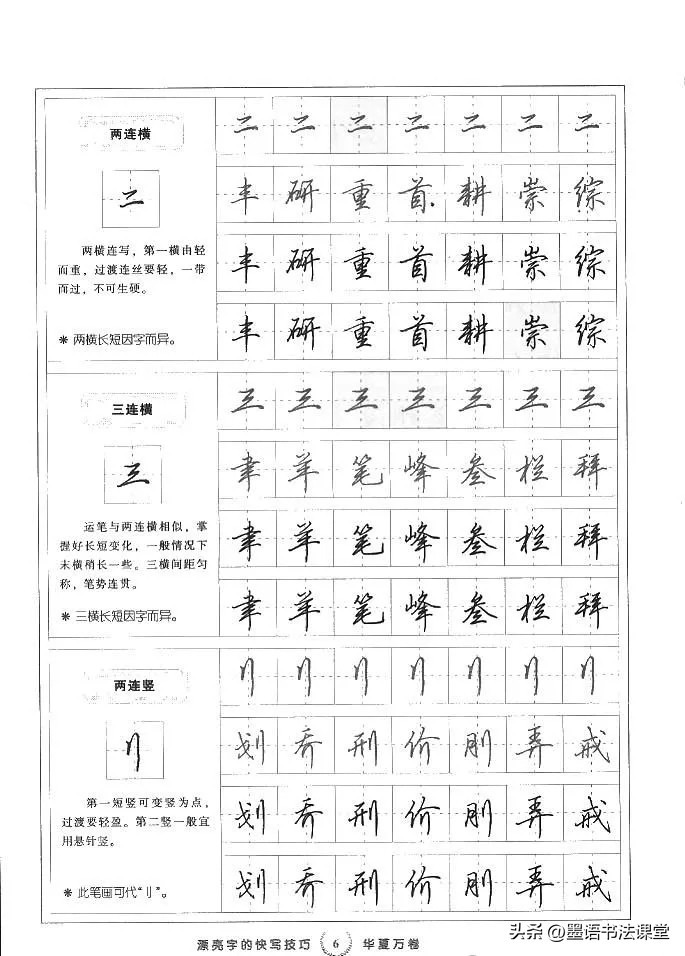 两连横
二
两横连写，第一横由轻
而重，过渡连丝要轻，一带
而过，不可生硬。
＊两横长短因字而异。
二 二 二 二 二 二 二
丰 研 重 首 耕 崇 综
丰 研 重 首 耕 崇 综
丰 研 重 首 耕 崇 综
三连横
三
运笔与两连横相似，掌
握好长短变化，一般情况下
末横稍长一些。三横间距匀
称，笔势连贯。
＊三横长短因字而异。
三 三 三 三 三 三 三
聿 羊 笔 峰 叁 栏 拜
聿 羊 笔 峰 叁 栏 拜
聿 羊 笔 峰 叁 栏 拜
两连竖
刂
第一短竖可变竖为点，
过渡要轻盈。第二竖一般宜
用悬针竖。
＊此笔画可代“刂”。
刂 刂 刂 刂 刂 刂 刂
划 乔 刑 价 刚 弄 戒
划 乔 刑 价 刚 弄 戒
划 乔 刑 价 刚 弄 戒
漂亮字的快写技巧 6 华夏万卷
头条@墨语书法课堂